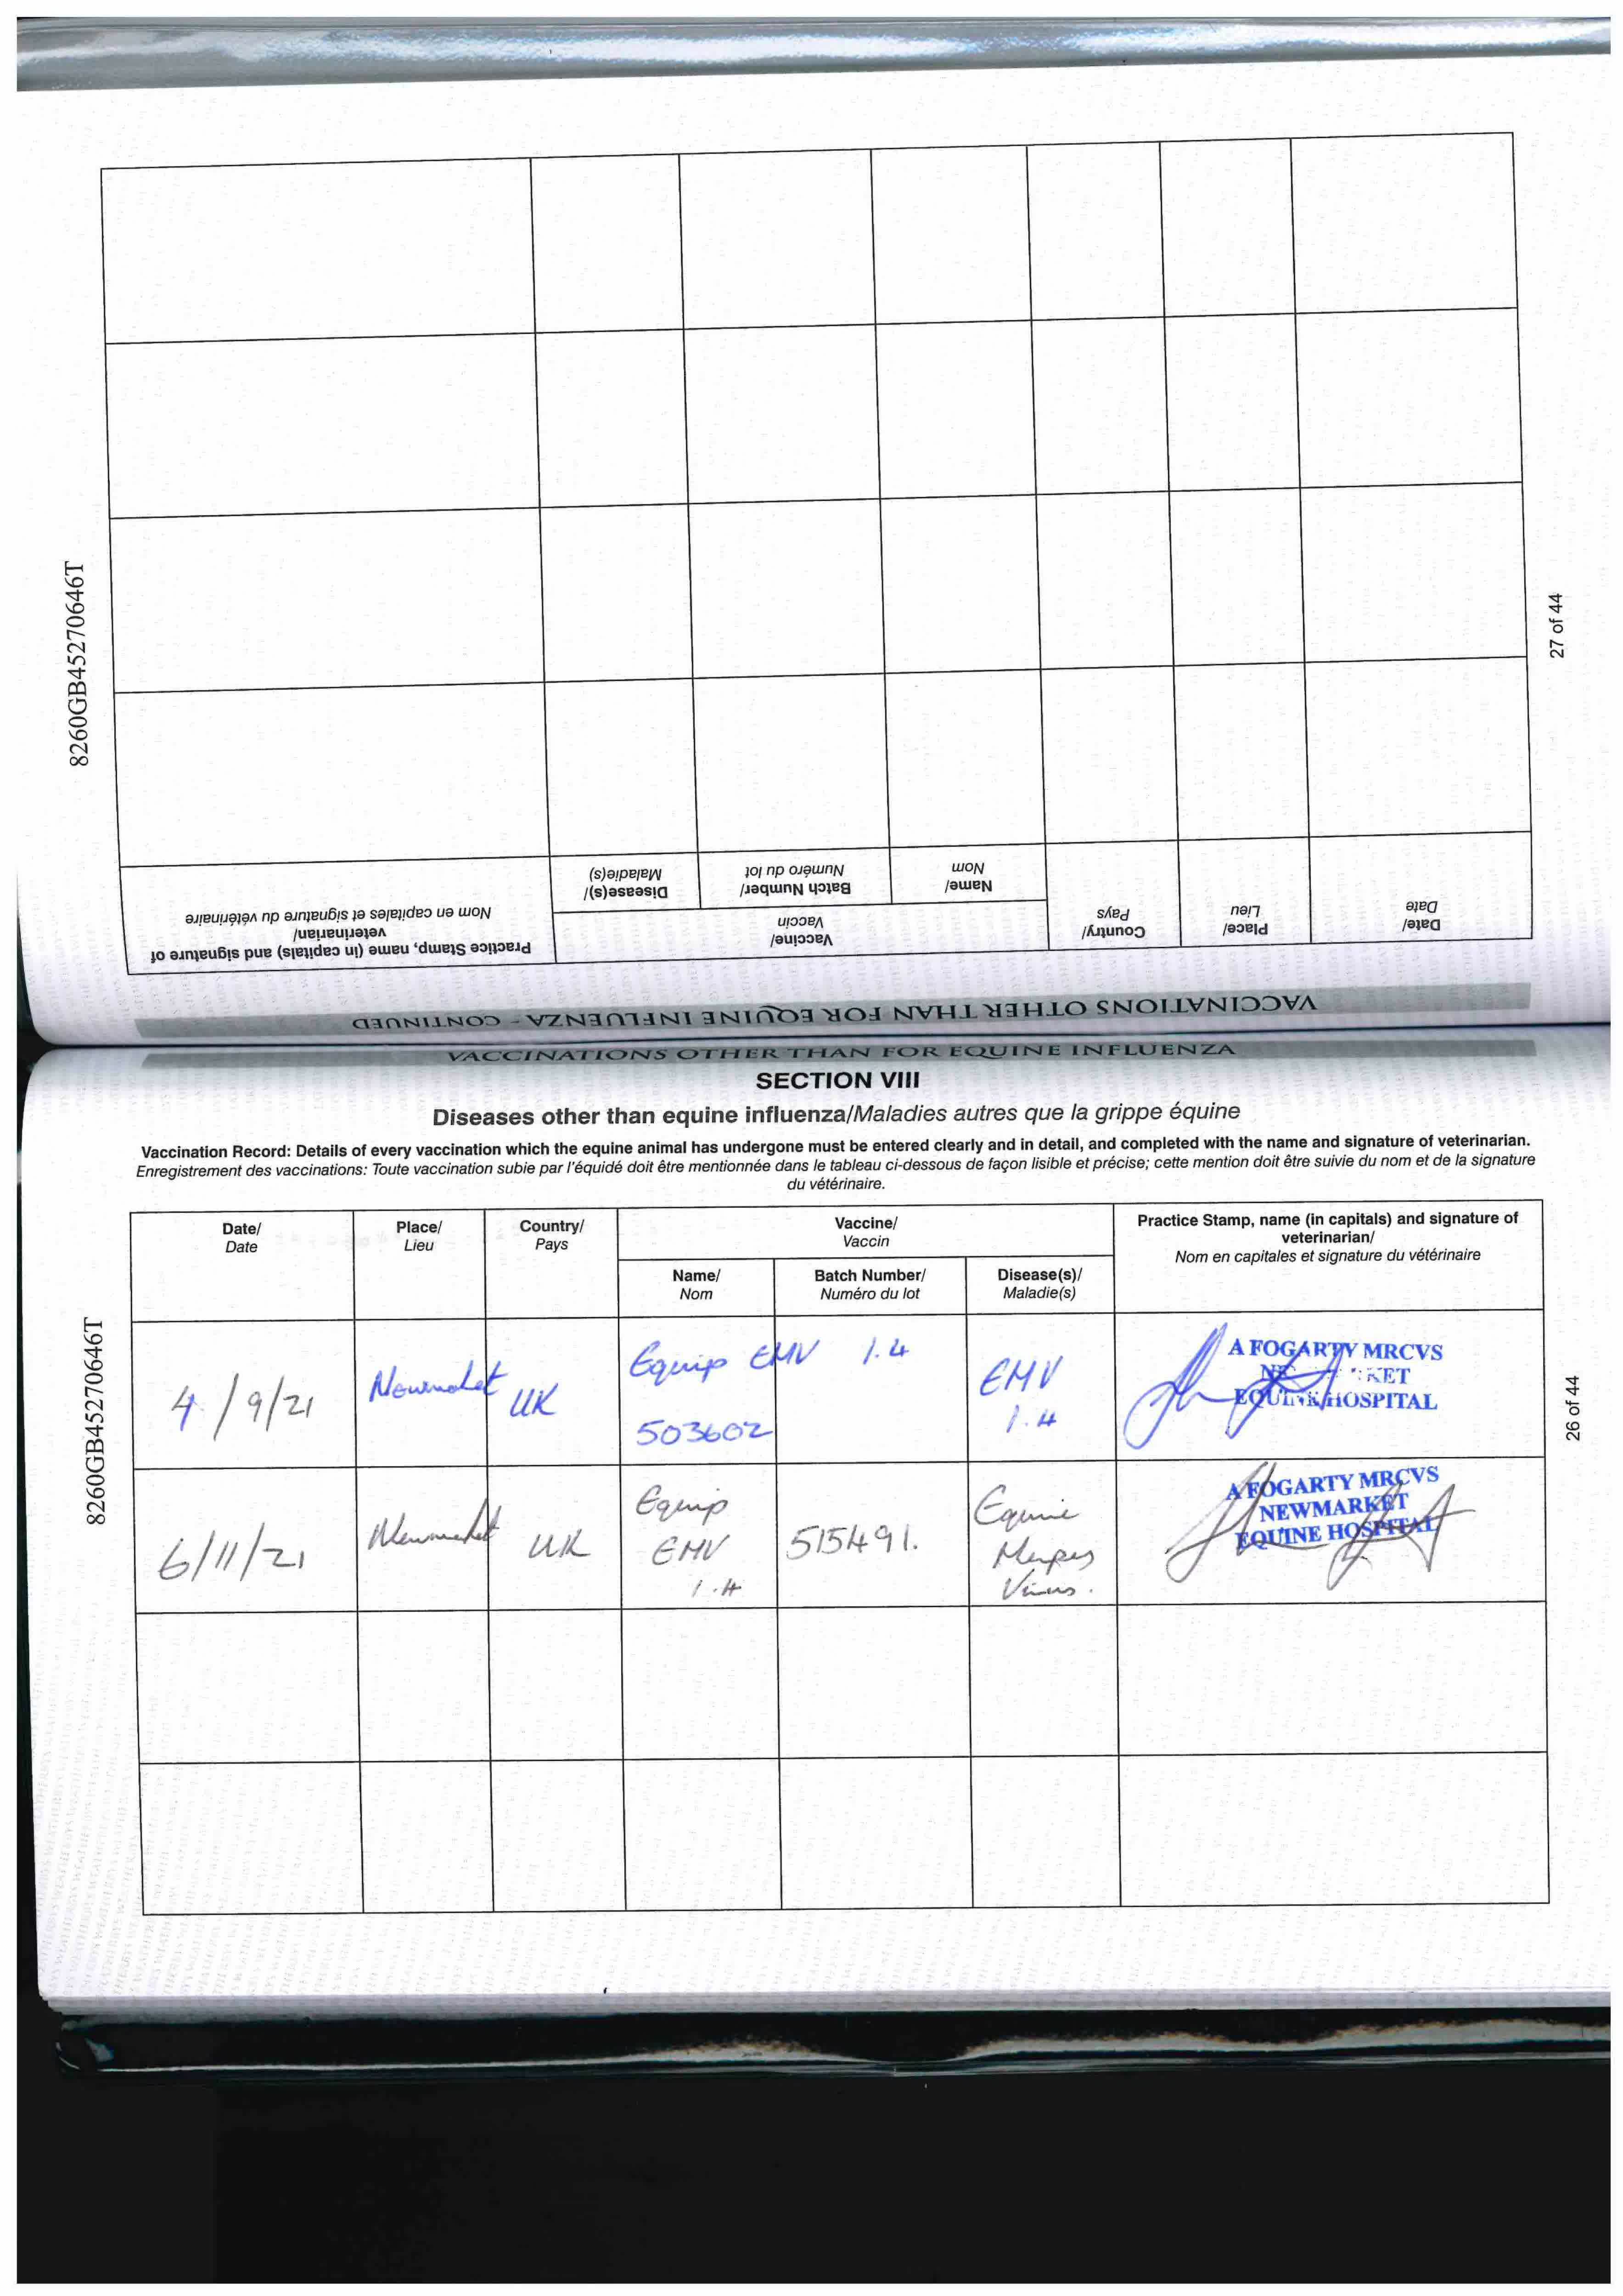 8260GB45270646T
27 of 44
VACCINATIONS OTHER THAN FOR EQUINE INFLUENZA - CONTINUED
Date/
Date
Place/
Lieu
Country/
Pays
Vaccine/
Vaccin
Name/
Nom
Batch Number/
Numéro du lot
Disease(s)/
Maladie(s)
Practice Stamp, name (in capitals) and signature of
veterinarian/
Nom en capitales et signature du vétérinaire
VACCINATIONS OTHER THAN FOR EQUINE INFLUENZA
SECTION VIII
Diseases other than equine influenza/Maladies autres que la grippe équine
Vaccination Record: Details of every vaccination which the equine animal has undergone must be entered clearly and in detail, and completed with the name and signature of veterinarian.
Enregistrement des vaccinations: Toute vaccination subie par l'équidé doit être mentionnée dans le tableau ci-dessous de façon lisible et précise; cette mention doit être suivie du nom et de la signature
du vétérinaire.
Date/
Date
Place/
Lieu
Country/
Pays
Vaccine/
Vaccin
Name/
Nom
Batch Number/
Numéro du lot
Disease(s)/
Maladie(s)
Practice Stamp, name (in capitals) and signature of
veterinarian/
Nom en capitales et signature du vétérinaire
4/9/21
Newmarket
UK
Equip EHV 1.4
503602
EHV
1.4
A FOGARTY MRCVS
EQUINE HOSPITAL
6/11/21
Newmarket
UK
Equip
EHV
1.4
515491.
Equine
Herpes
Virus.
A FOGARTY MRCVS
NEWMARKET
EQUINE HOSPITAL
8260GB45270646T
26 of 44